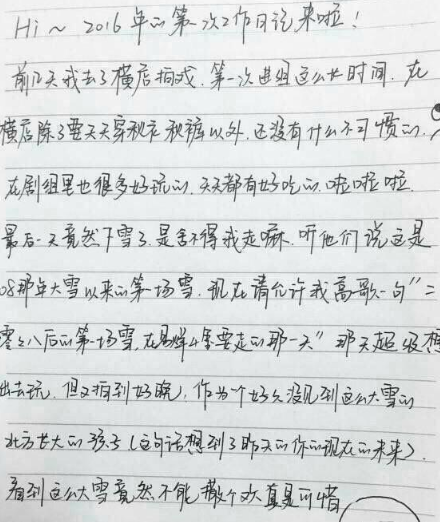 Hi~ 2016年的第一次工作日记来啦!
前几天我去了横店拍戏.第一次进组这么长时间.在
横店除了要天天穿秋衣秋裤以外,还没有什么不习惯的,
在剧组里也很多好玩的.天天都有好吃的.啦啦啦.
最后一天竟然下雪了.是舍不得我走嘛.听他们说这是
08那年大雪以来的第一场雪.现在请允许我高歌一句"二
零零八后的第一场雪,在易烊千玺要走的那一天"那天超级想
出去玩.但又拍到好晚,作为一个好久没见到这么大雪的
北方长大的孩子(这句话想到了昨天的你的现在的未来).
看到这么大雪竟然不能撒个欢真是可惜